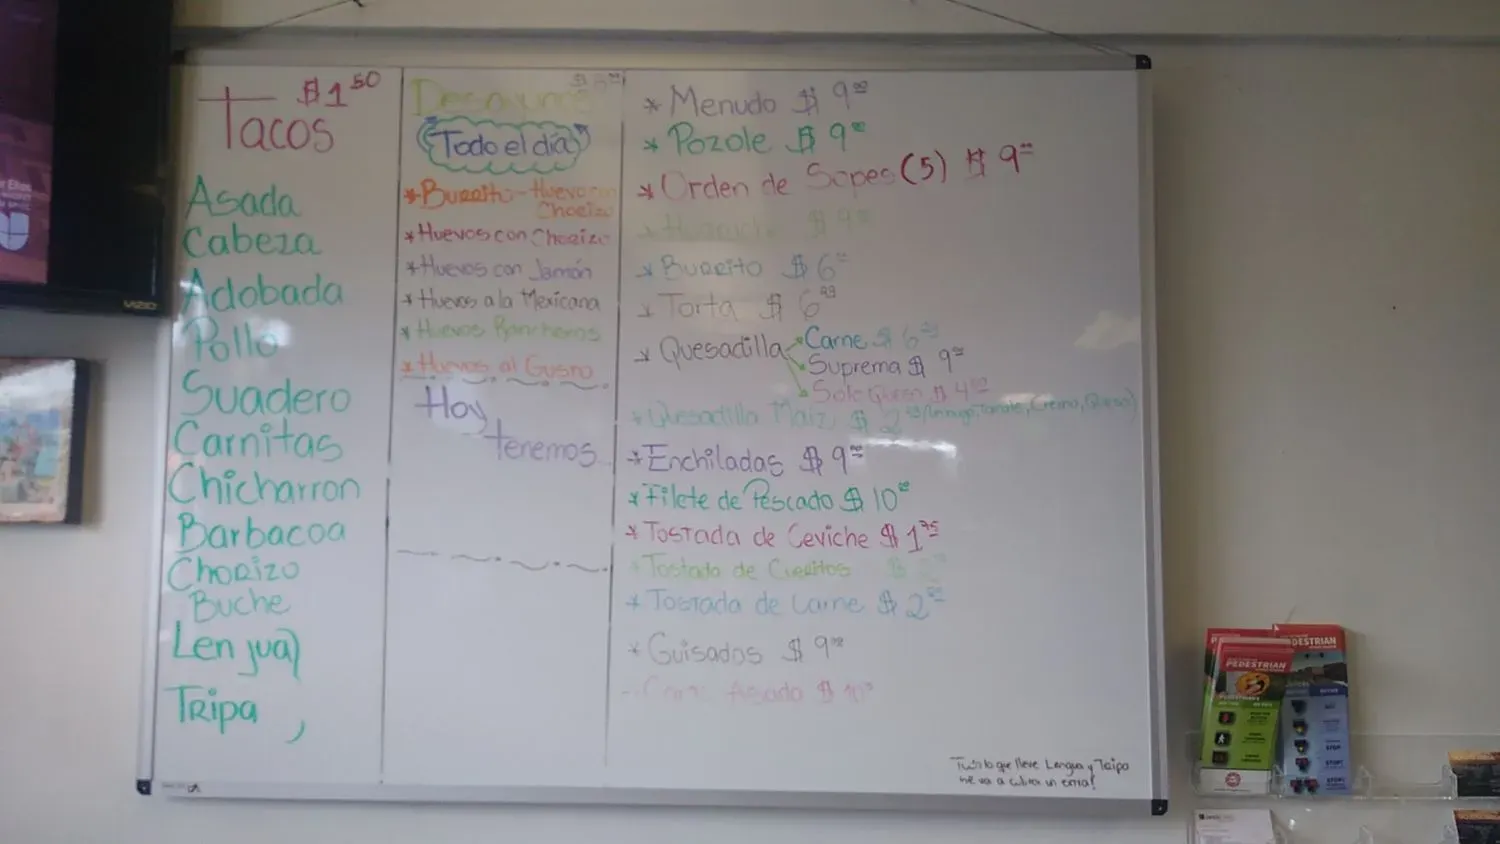 $1.50
Tacos
Asada
Cabeza
Adobada
Pollo
Suadero
Carnitas
Chicharron
Barbacoa
Chorizo
Buche
Lengua
Tripa
Desayunos
Todo el dia
*Burrito-Huevo con
Chorizo
*Huevos con Chorizo
*Huevos con Jamón
*Huevos a la Mexicana
*Huevos Rancheros
*Huevos al Gusto
Hoy
tenemos
*Menudo $9.00
*Pozole $9.00
*Orden de Sopes (5) $9.00
*Huarache
*Burrito $6
*Torta $6.99
*Quesadilla Carne $6
Suprema $9
Solo Queso $4
*Quesadilla Maiz $2
*Enchiladas $9
*Filete de Pescado $10
*Tostada de Ceviche $1.75
*Tostada de Cueritos
*Tostada de Carne $2
*Guisados $9.00
Carne Asada
que lleve Lengua y Tripa
se va a cobrar un extra!
VIZIO
PEDESTRIAN
PEDESTRIAN
STOP
STOP!